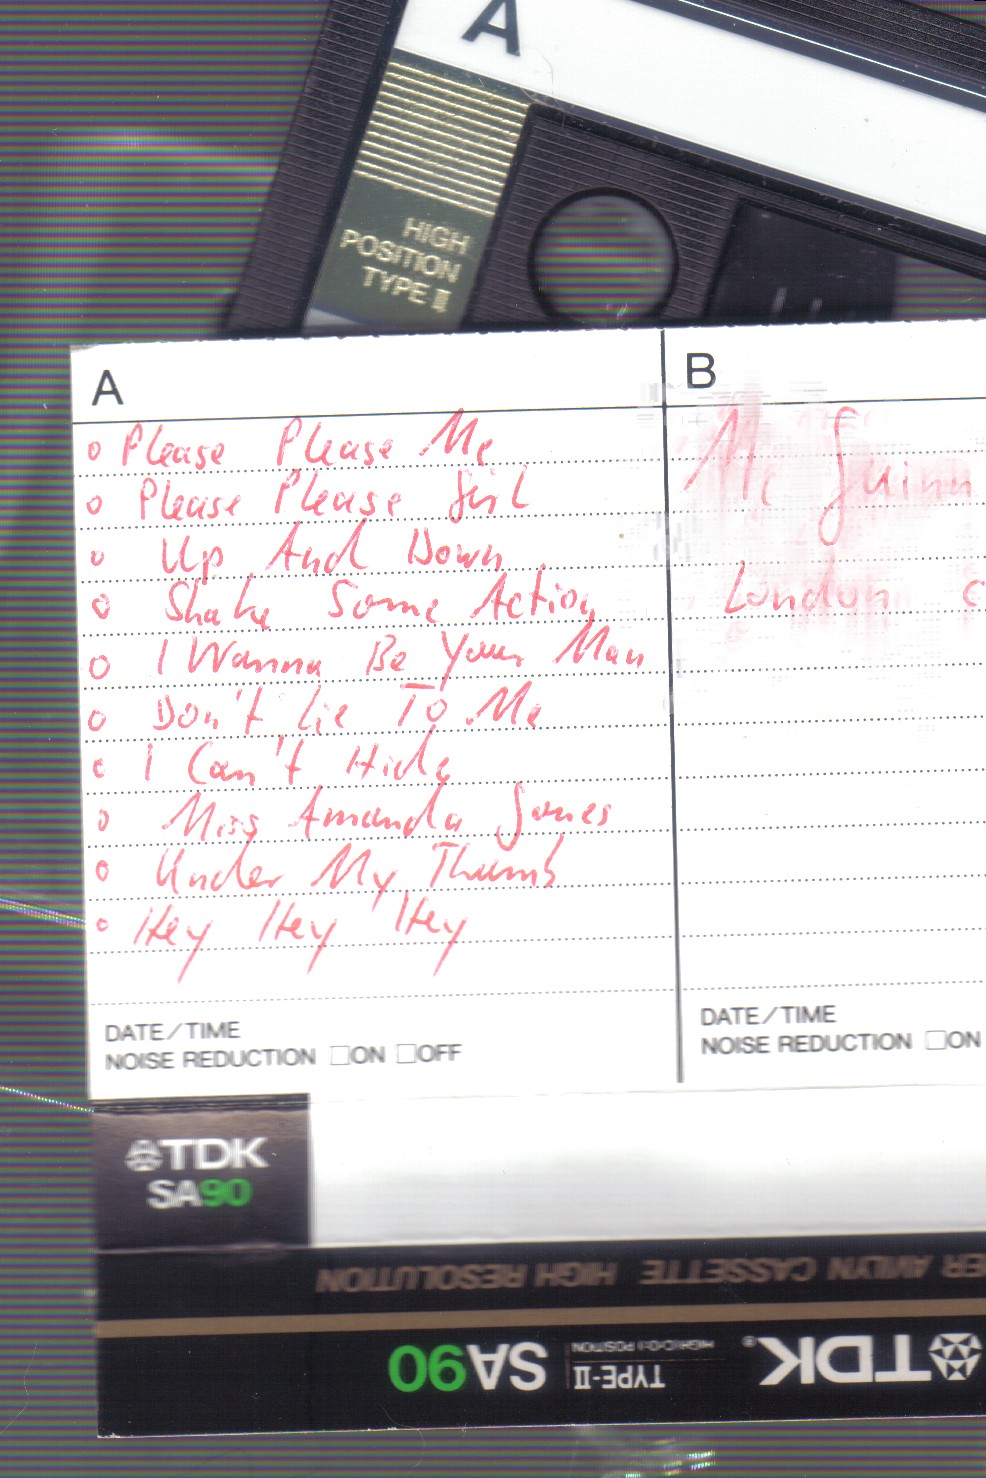 A
HIGH
POSITION
TYPE II
A
B
Please Please Me
Please Please Girl
Up And Down
Shake Some Action
I Wanna Be Your Man
Don't Lie To Me
I Can't Hide
Miss Amanda Jones
Under My Thumb
Hey Hey Hey
Mc Guinn
London
DATE/TIME
NOISE REDUCTION □ON □OFF
DATE/TIME
NOISE REDUCTION □ON
TDK
SA90
ER AVILYN CASSETTE HIGH RESOLUTION
TDK® HIGH(CrO2) POSITION TYPE-II SA90